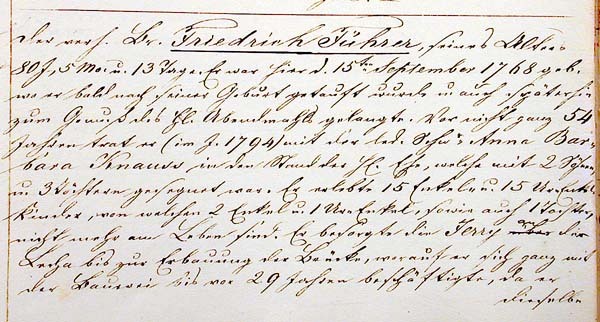 Der verh. Br. Friedrich Führer, seines Alters
80 J., 5 Mo. u. 13 Tage. Er war hier d. 15ten September 1768 geb.
wo er bald nach seiner Geburt getauft wurde u. auch späterhin
zum Genuß des Hl. Abendmahls gelangte. Vor nicht ganz 54
Jahren trat er (im J. 1794) mit der led. Schw. Anna Bar-
bara Knauss in den Stand der Hl. Ehe, welche mit 2 Söhnen
u. 3 Töchtern gesegnet war. Er erlebte 15 Enkel u. 15 Urenkel
Kinder, von welchen 2 Enkel u. 1 Urenkel, sowie auch 1 Tochter,
nicht mehr am Leben sind. Er besorgte die Ferry an der
Lecha bis zur Erbauung der Brücke, worauf er sich ganz mit
der Bauerei bis vor 29 Jahren beschäftigte, da er
dieselbe